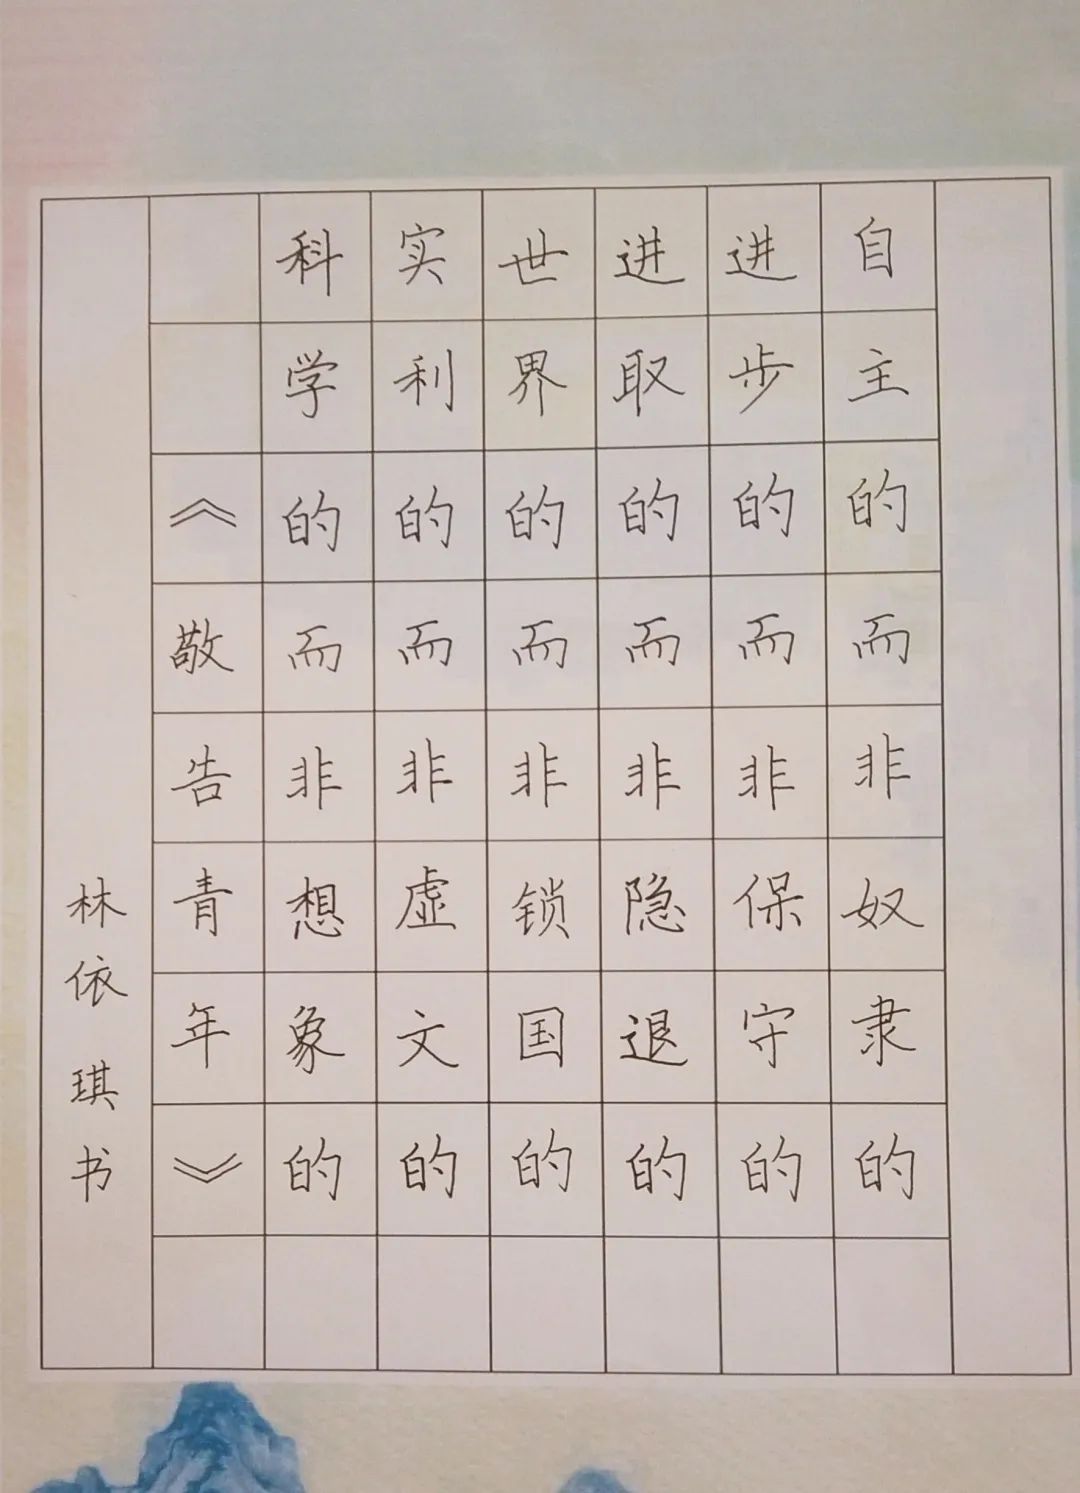 自主的而非奴隶的
进步的而非保守的
进取的而非隐退的
世界的而非锁国的
实利的而非虚文的
科学的而非想象的
《敬告青年》
林依琪书